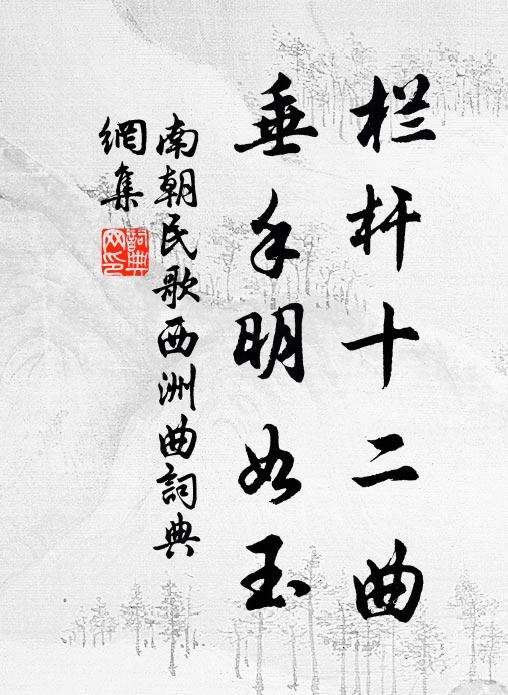 栏杆十二曲
垂手明如玉
南朝民歌西洲曲詞典
網集
詞典網印